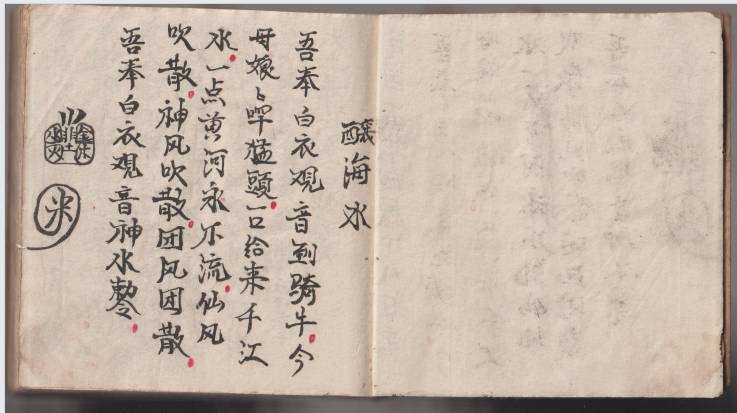 醸海水
吾奉白衣观音到骑牛今
母娘々 猛頭一口给来千江
水一点黄河永不流仙风
吹散神风吹散团风团散
吾奉白衣观音神水勅令
米